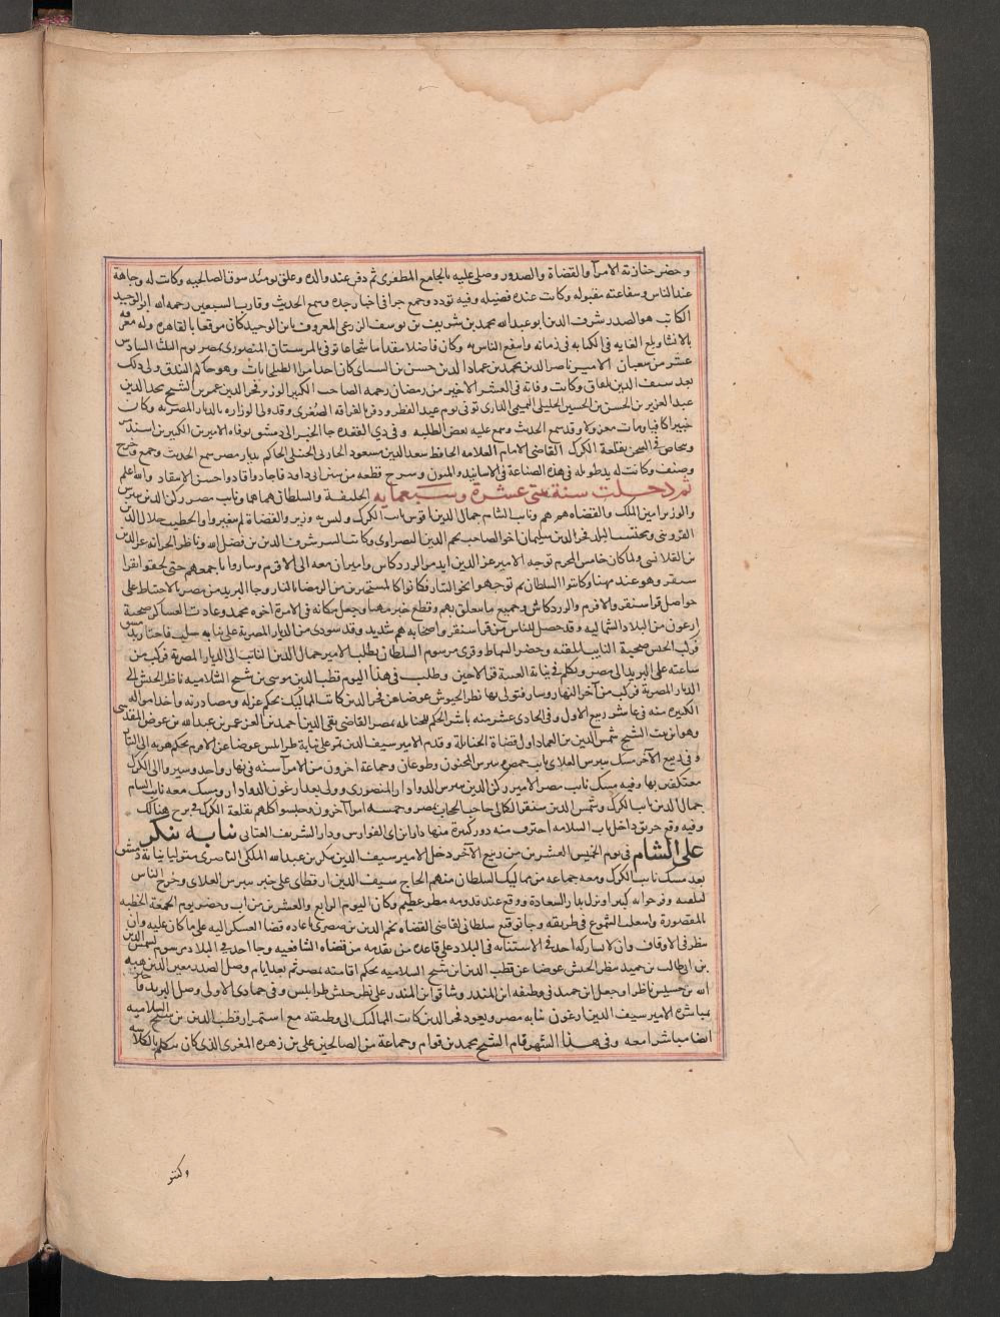 وحضر جنازته الامرآ والقضاة والصدور وصلى عليه بالجامع المظفرى ثم دفن عند والده وغلق يومئذ سوق الصالحيه وكانت له وجاهة
عند الناس وشفاعته مقبوله وكانت عنده فضيله وفيه تودد وجمع جزا فى اخبار جده وسمع الحديث وقارب السبعين رحمه الله ابن الوحيد
الكاتب هو الصدر شرف الدين ابو عبد الله محمد بن شريف بن يوسف الزرعى المعروف بابن الوحيد كان موقعا بالقاهره وله معرفه
بالانشا وبلغ الغايه فى الكتابه فى زمانه وانتفع الناس به وكان فاضلا مقداما شجاعا توفى بالمرستان المنصورى بمصر يوم الثلثا السادس
عشر من شعبان الامير ناصر الدين محمد بن عماد الدين حسن بن النسائى كان احد امرا الطبلخانات وهو حاكم البندق ولى ذلك
بعد سيف الدين بلغاق وكانت وفاته فى العشر الاخير من رمضان رحمه الصاحب الكبير الوزير فخر الدين عمر بن الشيخ مجد الدين
عبد العزيز بن الحسن بن الحسين الخليلى التميمى الدارى توفى يوم عيد الفطر ودفن بالقرافه الصغرى وقد ولى الوزاره بالديار المصريه وكان
خبيرا كافيا ومات معزولا وقد سمع الحديث وسمع عليه بعض الطلبه وفى ذى القعده جا الخبر الى دمشق بوفاه الامير بن الكبيرين اسندمر
وبتخاص فى السجن بقلعة الكرك القاضى الامام العلامه الحافظ سعد الدين مسعود الحارثى الحنبلى الحاكم بديار مصر سمع الحديث وجمع وخرج
وصنف وكانت له يد طوله فى هذه الصناعة فى الاسانيد والمتون وشرح قطعه من سنن ابى داود فاجاد وافاد واحسن الانتقاد والله اعلم
ثم دخلت سنة ثنتى عشرة وسبعمايه الخليفة والسلطان هماهما ونايب مصر ركن الدين بيبرس
والوزير امين الملك والقضاه هم هم ونايب الشام جمال الدين اقوش نايب الكرك وليس به وزير والقضاة لم يتغيروا والخطيب جلال الدين
القزوينى ومحتسب البلد فخر الدين سليمان اخو الصاحب نجم الدين البصراوى وكاتب السر شرف الدين بن فضل الله وناظر الخزانه عز الدين
بن القلانسى ولما كان خامس المحرم توجه الامير عز الدين ايدمر الزردكاش واميران معه الى الافرم وساروا باجمعهم حتى لحقوا بقرا
سنقر وهو عند مهنا وكاتبوا السلطان ثم توجهوا نحو التتار فكانوا كالمستجير من الرمضا بالنار وجا البريد من مصر بالاحتياط على
حواصل قراسنقر والافرم والزردكاش وجميع ما يتعلق بهم وقطع خبز مهنا وجعل مكانه فى الامرة اخوه محمد وعادت العساكر صحبة
ارغون من البلاد الشماليه وقد حصل للناس من قراسنقر واصحابه هم شديد وقدم سودى من الديار المصرية على نيابه حلب فاجتاز بدمشق
فركب الجيش صحبة النايب لتلقيه وحضر السماط وقرى مرسوم السلطان بطلب الامير جمال الدين النايب الى الديار المصرية فركب من
ساعته على البريد الى مصر وتكلم فى نيابة الغيبة قرالاجين وطلب فى هذا اليوم قطب الدين موسى بن شيخ السلاميه ناظر الجيش الى
الديار المصرية فركب من آخر النهار وسار فتولى بها نظر الجيوش عوضا عن فخر الدين كاتب المماليك بحكم عزله ومصادرته واخذ امواله
الكثيره منه فى عاشر ربيع الاول وفى الحادى عشر منه باشر الحكم للحنابله بمصر القاضى تقى الدين احمد بن المعز عمر بن عبد الله بن عوض المقدسى
وهو ابن بنت الشيخ شمس الدين بن العماد اول قضاة الحنابلة وقدم الامير سيف الدين تمر على نيابة طرابلس عوضا عن الافرم بحكم هربه الى التتار
وفى ربيع الآخر مسك بيبرس العلائى نايب حمص وبيبرس المجنون وطوغان وجماعة اخرون من الامرآ ستة فى نهار واحد وسيروا الى الكرك
معتقلين بها وفيه مسك نايب مصر الامير ركن الدين بيبرس الدوادار المنصورى وولى بعده ارغون الدوادار ومسك معه نايب الشام
جمال الدين نايب الكرك وشمس الدين سنقر الكمالى حاجب الحجاب بمصر وخمسه امرآ آخرون وحبسوا كلهم بقلعة الكرك فى برج هناك
وفيه وقع حريق داخل باب السلامه احترق منه دور كثيرة منها دار ابن ابى الفوارس ودار الشريف القبانى نيابه تنكز
على الشام فى يوم الخميس العشرين من ربيع الآخر دخل الامير سيف الدين تنكز بن عبد الله الملكى الناصرى متوليا نيابة دمشق
بعد مسك نايب الكرك ومعه جماعه من مماليك السلطان منهم الحاج سيف الدين ارقطاى على خبز بيبرس العلاى وخرج الناس
لتلقيه وفرحوا به كثيرا ونزل بدار السعادة ووقع عند قدومه مطر عظيم وكان اليوم الرابع والعشرين من اب وحضر يوم الجمعة الخطبه
بالمقصورة واشعلت الشموع فى طريقه وجا توقيع سلطانى لقاضى القضاه نجم الدين بن صصرى باعاده قضا العسكر اليه على ما كان عليه وان
ينظر فى الاوقاف وان لا يشاركه احد فى الاستنابه فى البلاد على قاعدة من تقدمه من قضاه الشافعيه وجا احد فى البلاد مرسوم لشمس الدين
بن ابى طالب بن حميد بنظر الجيش عوضا عن قطب الدين ابن شيخ السلاميه بحكم اقامته بمصر ثم بعد ايام وصل الصدر معين الدين هبه
الله بن حسيس ناظرا وجعل ابن حميد فى وظيفه ابن المنذر وسافر ابن المنذر على نظر جيش طرابلس وفى جمادى الاولى وصل البريد فاخبر
بمباشره الامير سيف الدين ارغون نيابه مصر وبعود فخر الدين كاتب المماليك الى وظيفته مع استمرار قطب الدين بن شيخ السلاميه
ايضا مباشرا معه وفى هذا الشهر قام الشيخ محمد بن قوام وجماعة من الصالحين على بن زهره المغربى الذى كان يتكلم بالكلاسه
وكتبو